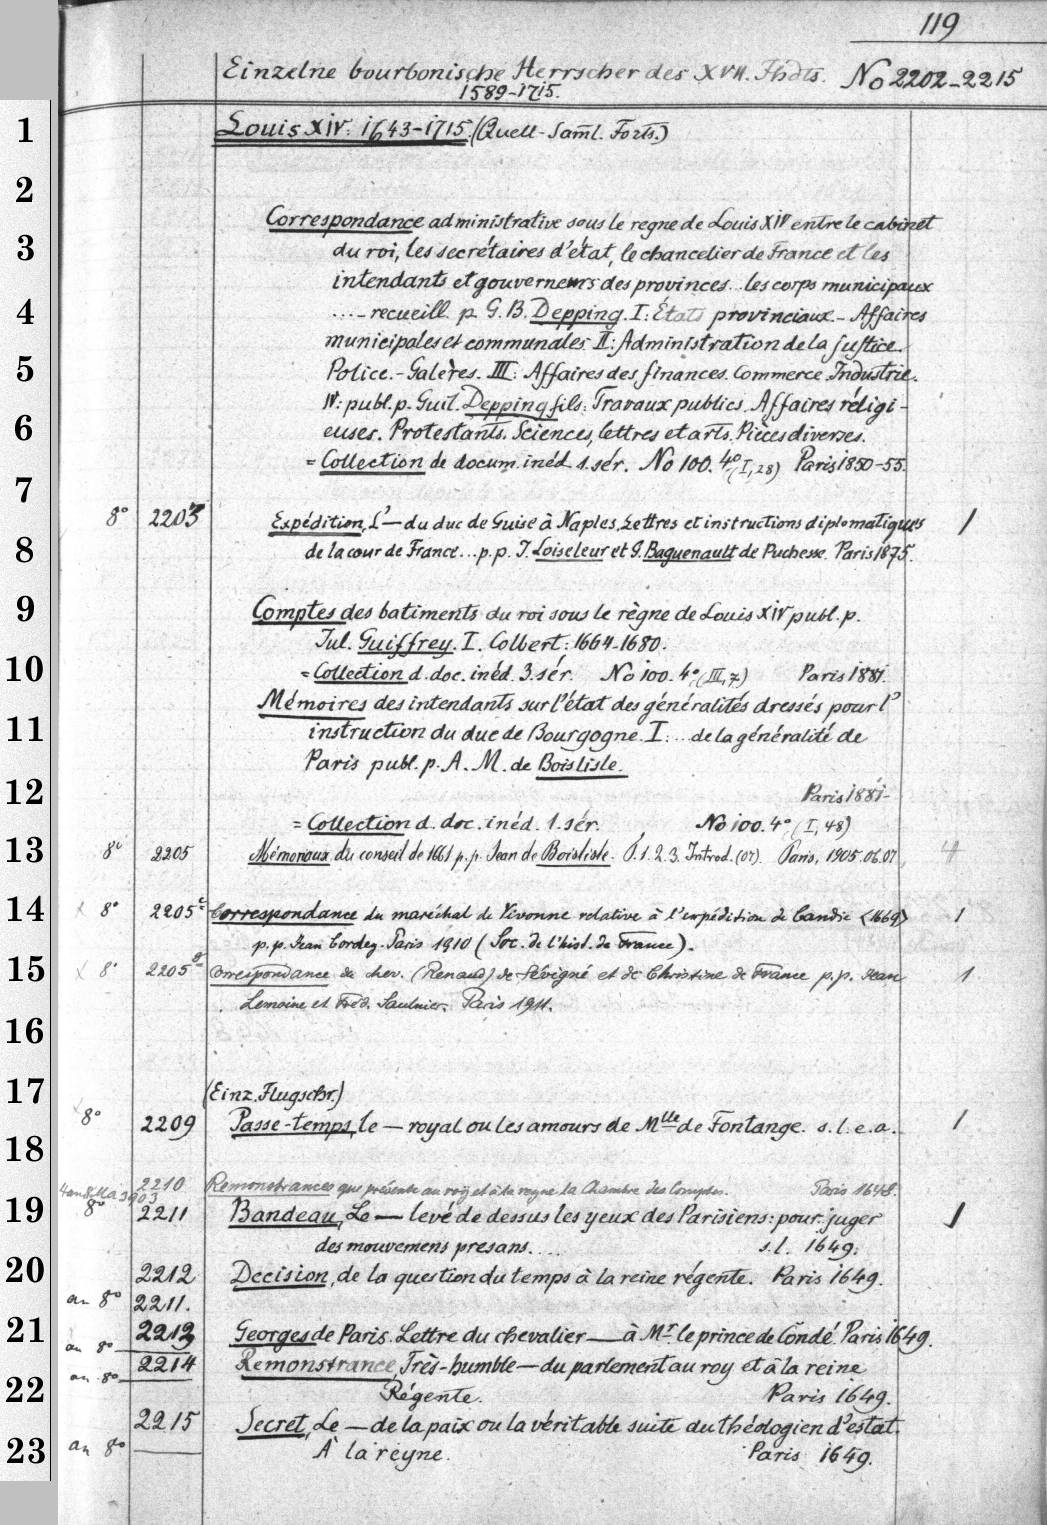 119
Einzelne bourbonische Herrscher des XVII. Jhdts. No 2202-2215
1589-1715.
1 Louis XIV: 1643-1715 (Quell-Saml. Forts.)
2
Correspondance administrative sous le regne de Louis XIV entre le cabinet
3 du roi, les secrétaires d'état, le chancelier de France et les
intendants et gouverneurs des provinces... les corps municipaux
4 ...-recueill. p. G. B. Depping. I: États provinciaux.- Affaires
municipales et communales. II: Administration de la justice.
5 Police.- Galères. III: Affaires des finances. Commerce. Industrie.
IV: publ. p. Guil. Depping fils: Travaux publics. Affaires réligi-
6 euses. Protestants. Sciences, lettres et arts. Pièces diverses.
= Collection de docum. inéd. 1. sér. No 100. 4° (I, 28) Paris 1850-55.
7
8° 2203 Expédition, L'— du duc de Guise à Naples, Lettres et instructions diplomatiques 1
8 de la cour de France... p. p. J. Loiseleur et G. Baguenault de Puchesse. Paris 1875.
9 Comptes des batiments du roi sous le règne de Louis XIV publ. p.
Jul. Guiffrey. I. Colbert: 1664-1680.
10 = Collection d. doc. inéd. 3. sér. No 100. 4° (III, 7) Paris 1881.
Mémoires des intendants sur l'état des généralités dressés pour l'
11 instruction du duc de Bourgogne. I: ... de la généralité de
Paris publ. p. A. M. de Boislisle.
12 Paris 1881-
= Collection d. doc. inéd. 1. sér. No 100. 4° (I, 48)
13 8° 2205 Mémoriaux du conseil de 1661 p. p. Jean de Boislisle. T. 1. 2. 3. Introd. (07). Paris, 1905.06.07. 4
14 x 8° 2205c Correspondance du maréchal de Vivonne relative à l'expédition de Candie <1669> 1
p. p. Jean Cordey. Paris 1910 (Soc. de l'hist. de France).
15 x 8° 2205g Correspondance du chev. (Renaud) de Sévigné et de Christine de France p. p. Jean 1
Lemoine et Fréd. Saulnier. Paris 1911.
16
17 (Einz. Flugschr.)
x 8° 2209 Passe-temps, le — royal ou les amours de Mlle de Fontange. s. l. e. a. 1
18
2210 Remonstrances que présente au roy et à la reyne la Chambre des Comptes. Paris 1648.
19 8° 2211 Bandeau, Le — levé de dessus les yeux des Parisiens: pour juger 1
des mouvemens presans..... s. l. 1649.
20 2212 Decision, de la question du temps à la reine régente. Paris 1649.
an 8° 2211.
21 2213 Georges de Paris. Lettre du chevalier — à Mr. le prince de Condé. Paris 1649.
an 8°
2214 Remonstrance, Très-humble — du parlement au roy et à la reine
22 an 8° Régente. Paris 1649.
2215 Secret, Le — de la paix ou la véritable suite du théologien d'estat.
23 an 8° A la reyne. Paris 1649.